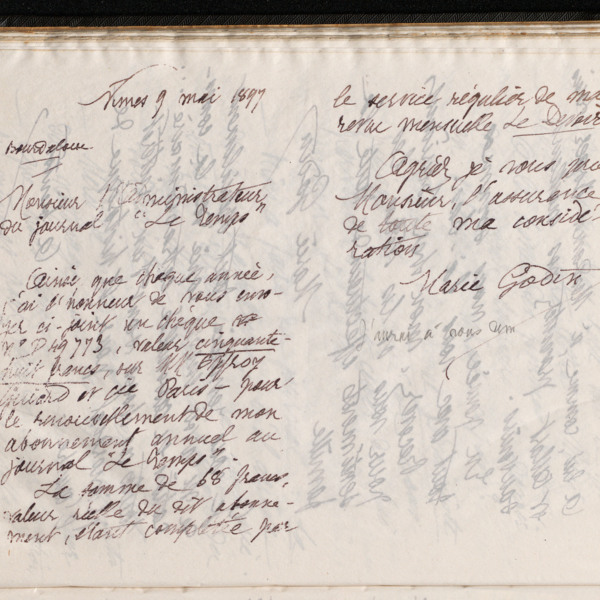 Nimes 9 mai 1897
Bourdaloue
Monsieur l'Administrateur
du journal "Le Temps"
Ainsi que chaque année,
j'ai l'honneur de vous envo-
yer ci-joint un chèque
n° D 49773, valeur cinquante-
huit francs, sur MM Offroy
Guiard et cie Paris - pour
le renouvellement de mon
abonnement annuel au
journal "Le Temps".
La somme de 68 francs,
valeur réelle du dit abonne-
ment, étant complétée par
le service régulier de ma
revue mensuelle Le Devoir
Agréez, je vous prie
Monsieur, l'assurance
de toute ma considé
ration
Marie Godin